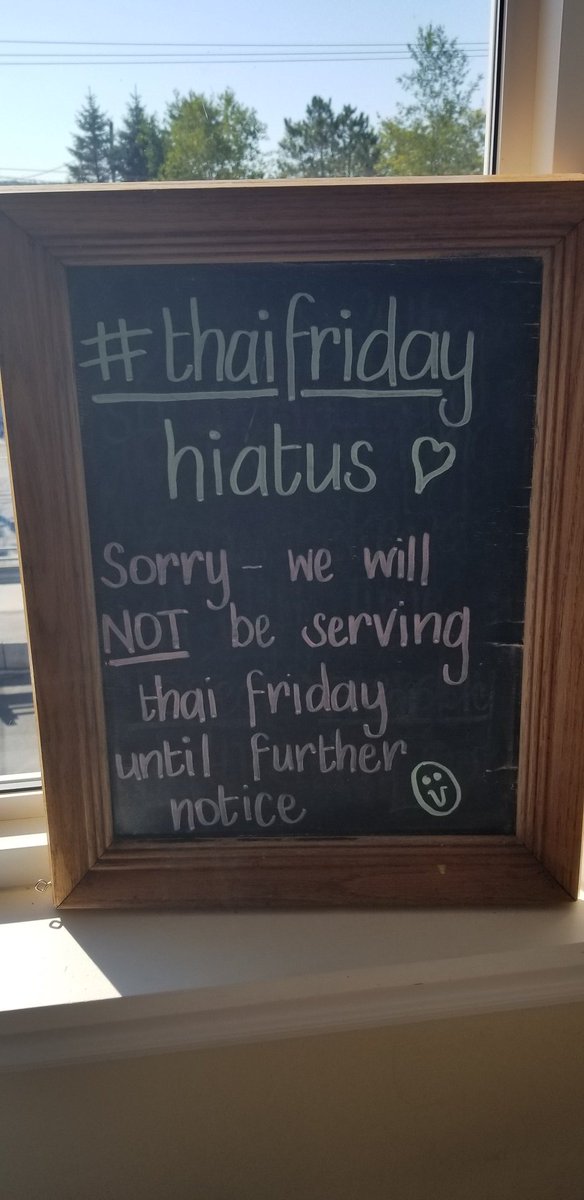 #thaifriday
hiatus
Sorry - we will
NOT be serving
thai friday
until further
notice